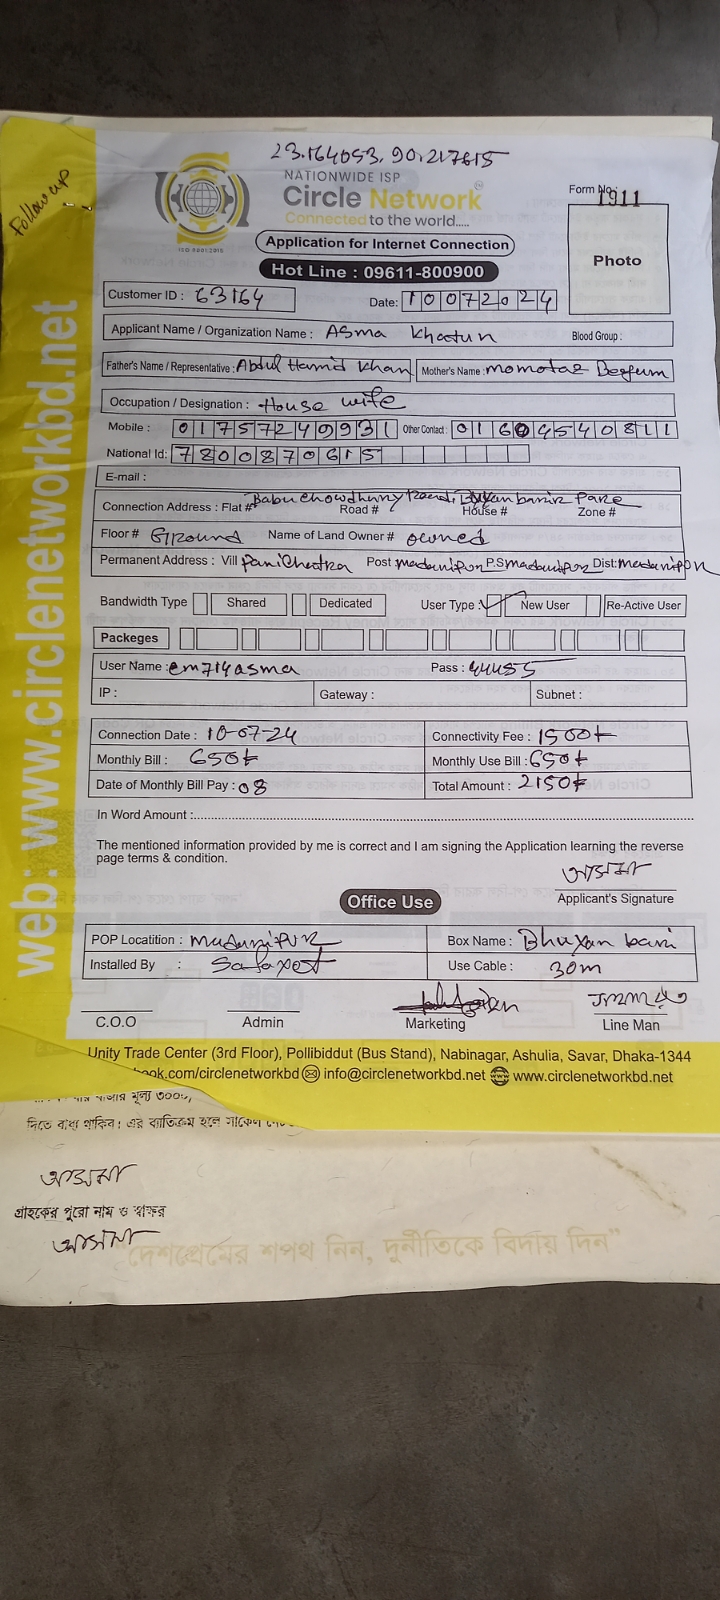 Follow up
23.164053, 90.217615
NATIONWIDE ISP
Circle Network
Connected to the world.....
ISO 9001:2015
Form No: 1911
Photo
Application for Internet Connection
Hot Line : 09611-800900
Customer ID : 63164 Date: 10072024
Applicant Name / Organization Name : Asma Khatun Blood Group :
Father's Name / Representative : Abdul Hamid Khan Mother's Name : momotaz Begum
Occupation / Designation : House wife
Mobile : 01757249931 Other Contact : 01604540811
National Id: 7800870615
E-mail :
Connection Address : Flat # Babu Chowdhury Road, Bhuyan barir Pare Road # House # Zone #
Floor # Ground Name of Land Owner # owned
Permanent Address : Vill Panichatra Post madaripur P.S madaripur Dist: madaripur
Bandwidth Type Shared Dedicated User Type : New User Re-Active User
Packeges
User Name : em714asma Pass : 44455
IP : Gateway : Subnet :
Connection Date : 10-07-24 Connectivity Fee : 1500৳
Monthly Bill : 650৳ Monthly Use Bill : 650৳
Date of Monthly Bill Pay : 08 Total Amount : 2150৳
In Word Amount :
The mentioned information provided by me is correct and I am signing the Application learning the reverse
page terms & condition.
আসমা
Applicant's Signature
Office Use
POP Locatition : Madaripur Box Name : Bhuyan bari
Installed By : Safayet Use Cable : 30m
C.O.O Admin Marketing Line Man
Unity Trade Center (3rd Floor), Pollibiddut (Bus Stand), Nabinagar, Ashulia, Savar, Dhaka-1344
ook.com/circlenetworkbd info@circlenetworkbd.net www.circlenetworkbd.net
web: www.circlenetworkbd.net
দিতে বাধ্য থাকিব। এর ব্যতিক্রম হলে
আসমা
গ্রাহকের পুরো নাম ও স্বাক্ষর
আসমা
"দেশপ্রেমের শপথ নিন, দুর্নীতিকে বিদায় দিন"